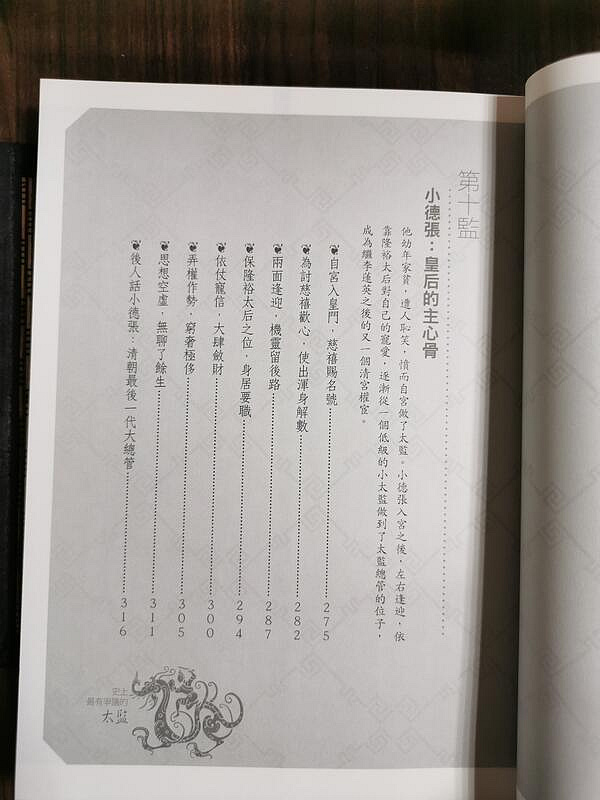 第十監
小德張：皇后的主心骨
他幼年家貧，遭人恥笑，憤而自宮做了太監。小德張入宮之後，左右逢迎，依
靠隆裕太后對自己的寵愛，逐漸從一個低級的小太監做到了太監總管的位子，
成為繼李蓮英之後的又一個清宮權宦。
自宮入皇門，慈禧賜名號 275
為討慈禧歡心，使出渾身解數 282
兩面逢迎，機靈留後路 287
保隆裕太后之位，身居要職 294
依仗寵信，大肆斂財 300
弄權作勢，窮奢極侈 305
思想空虛，無聊了餘生 311
後人話小德張：清朝最後一代大總管 316
史上
最有爭議的
太監